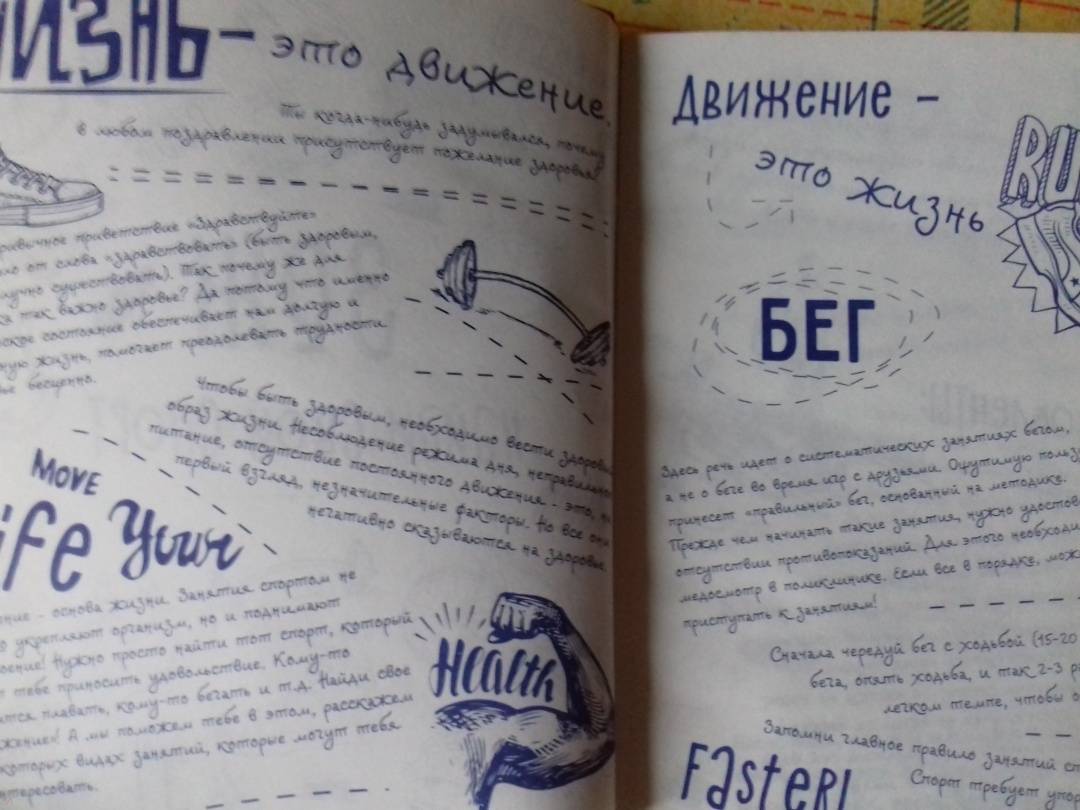 ЖИЗНЬ – это движение.
Ты когда-нибудь задумывался, почему
в любом поздравлении присутствует пожелание здоровья?
привычное приветствие «Здравствуйте»
от слова «здравствовать» (быть здоровым,
существовать). Так почему же для
так важно здоровье? Да потому что именно
состояние обеспечивает нам долгую и
жизнь, помогает преодолевать трудности.
бесценно.
Чтобы быть здоровым, необходимо вести здоровый
образ жизни. Несоблюдение режима дня, неправильное
питание, отсутствие постоянного движения - это, на
первый взгляд, незначительные факторы. Но все они
негативно сказываются на здоровье.
MOVE
Life Your
- основа жизни. Занятия спортом не
укрепляют организм, но и поднимают
Нужно просто найти тот спорт, который
тебе приносить удовольствие. Кому-то
плавать, кому-то бегать и т.д. Найди свое
А мы поможем тебе в этом, расскажем
некоторых видах занятий, которые могут тебя
Health
Движение –
это жизнь
RU
БЕГ
Здесь речь идет о систематических занятиях бегом,
а не о беге во время игр с друзьями. Ощутимую
принесет «правильный» бег, основанный на методике.
Прежде чем начинать такие занятия, нужно
отсутствии противопоказаний. Для этого
медосмотр в поликлинике. Если все в порядке,
приступать к занятиям!
Сначала чередуй бег с ходьбой (15-20
бега, опять ходьба, и так 2-3
легком темпе, чтобы
Запомни главное правило занятий
Спорт требует
FASTER!